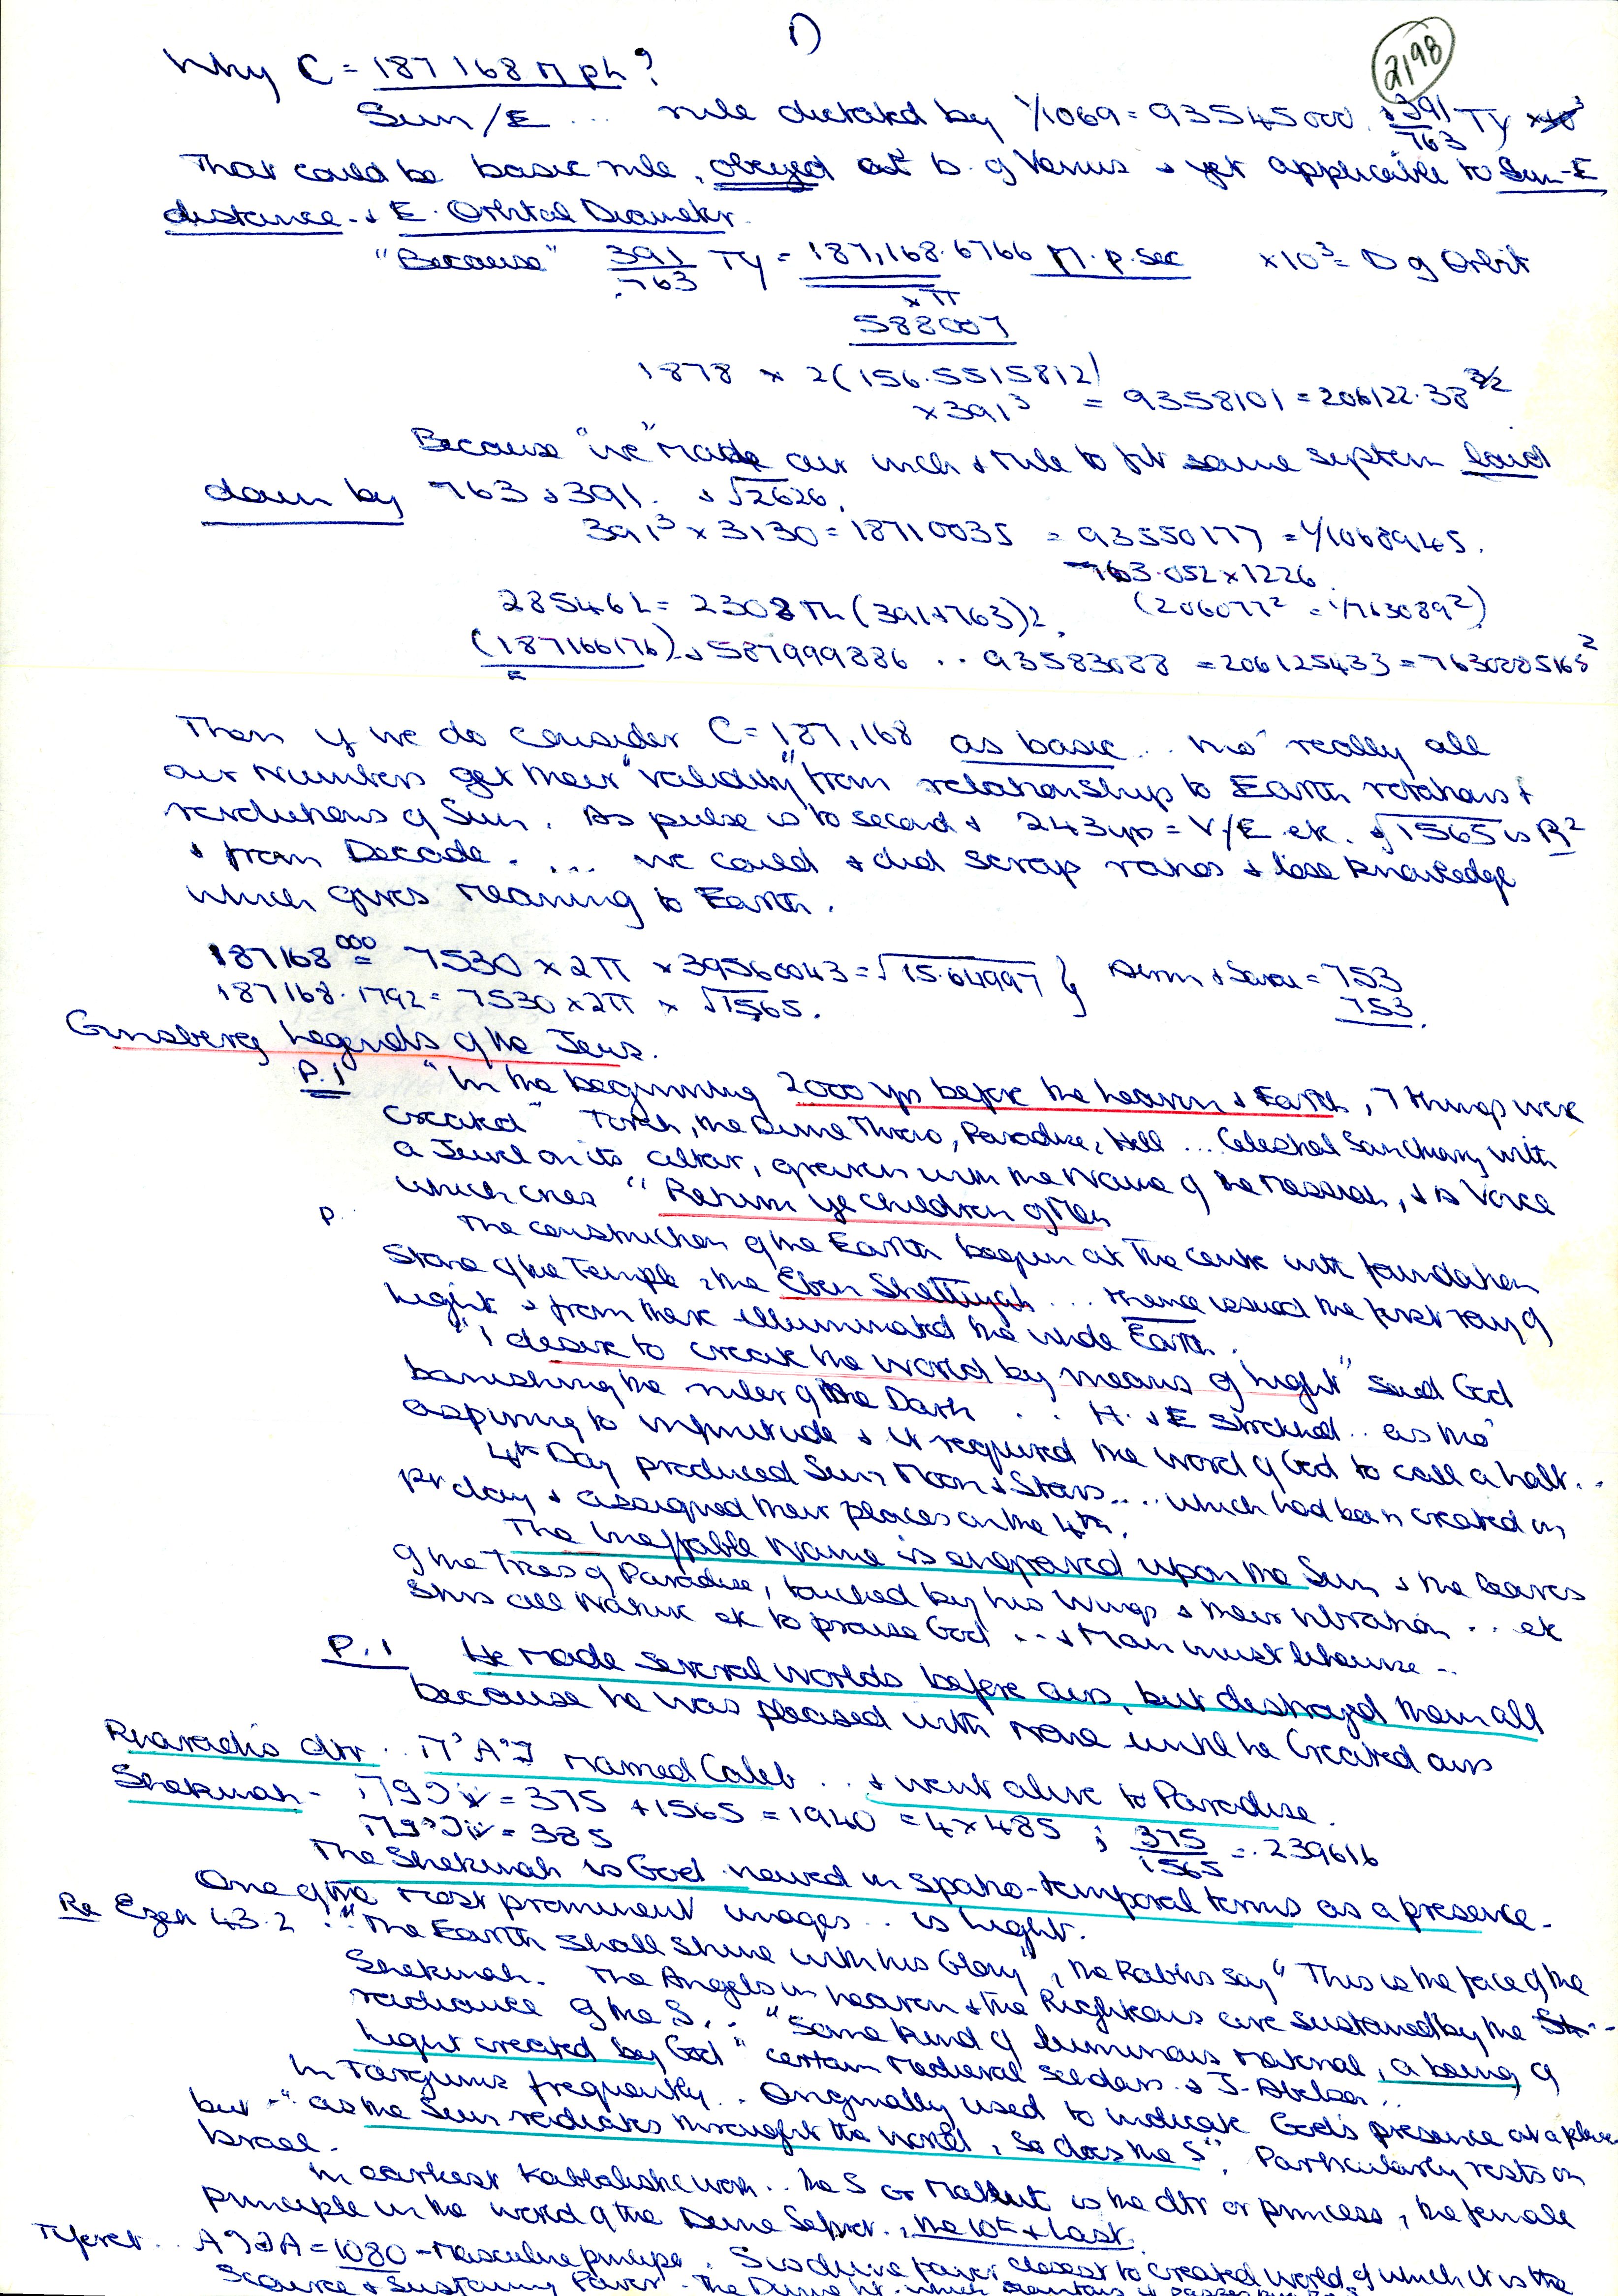 1)
2198
Why C = 187168 M ph?
Sun/E ... rule dictated by 1/1069 = 93545000. 391/763 Ty
That could be basic rule, obeyed at b. of Venus & yet applicable to Sun-E
distance & E. Orbital Diameter.
"Because" 391/.763 Ty = 187,168.6766 M.p.sec ×10³ = D of Orbit
×π
588007
1878 × 2(156.5515812)
×391³ = 9358101 = 206122.38 3/2
Because "we" made our inch & rule to fit same system laid
down by 763 & 391. & √2626.
391³ × 3130 = 18710035 = 93550177 = 1/10689145.
763.052 × 1226
285461 = 2308 Th (391+763)2. (206077² = 1/763089²)
(187166176) & 587999886 .. 93583088 = 206125433 = 7630885165²
Then if we do consider C = 187,168 as basic .. tho' really all
our Numbers get their "validity" from relationships to Earth rotations &
revolutions of Sun. As pulse is to second & 243 yrs = V/E etc. √1565 is R²
& from Decade. ... we could & did scrap ratios & lose knowledge
which gives meaning to Earth.
187168 000 = 7530 × 2π × 39560043 = √15.64997 } = 753
187168.1792 = 7530 × 2π × √1565. 753.
Ginsberg Legends of the Jews.
P.1 "In the beginning 2000 yrs before the heaven & Earth, 7 things were
created" Torah, the Divine Throne, Paradise, Hell ... Celestial Sanctuary with
a Jewel on its altar, graven with the Name of the Messiah, & a Voice
which cries "Return ye children of Men
P. The construction of the Earth begun at the centre with foundation
Stone of the Temple, the Eben Shettiyah ... thence issued the first ray of
Light & from there illuminated the whole Earth.
"I desire to create the world by means of Light" said God
banishing the ruler of the Dark .. H. & E stretched .. as tho'
aspiring to infinitude & it required the word of God to call a halt ..
4th Day produced Sun Moon & Stars .... which had been created on
1st day & assigned their places on the 4th.
The Ineffable Name is engraved upon the Sun & the leaves
of the Trees of Paradise, touched by his Wings & their vibration .. etc
stirs all Nature etc to praise God ... & Man must likewise --
P.1 He made several worlds before ours, but destroyed them all
because he was pleased with none until he created ours
Pharaoh's dtr .. named Caleb .. & went alive to Paradise.
Shekinah - = 375 + 1565 = 1940 = 4 × 485 ; 375/1565 = .239616
= 385
The Shekinah is God viewed in spatio-temporal terms as a presence -
One of the most prominent images .. is Light.
Re Ezek 43.2 . "The Earth shall shine with his Glory", the Rabbis say "This is the face of the
Shekinah. The Angels in heaven & the Righteous are sustained by the
radiance of the S. .. "Some kind of luminous material, a being of
Light created by God" certain Medieval & J. Abelson ..
In Targums frequently .. Originally used to indicate God's presence at a place
but -" as the Sun radiates throughout the World, so does the S". Particularly rests on
Israel.
In earliest Kabbalistic work .. the S or Malkut is the dtr or princess, the female
principle in the world of the Divine Sefirot, the 10th & last.
Tiferet .. = 1080 - Masculine principle. S is divine power closest to created world of which it is the
Source & Sustaining Power.